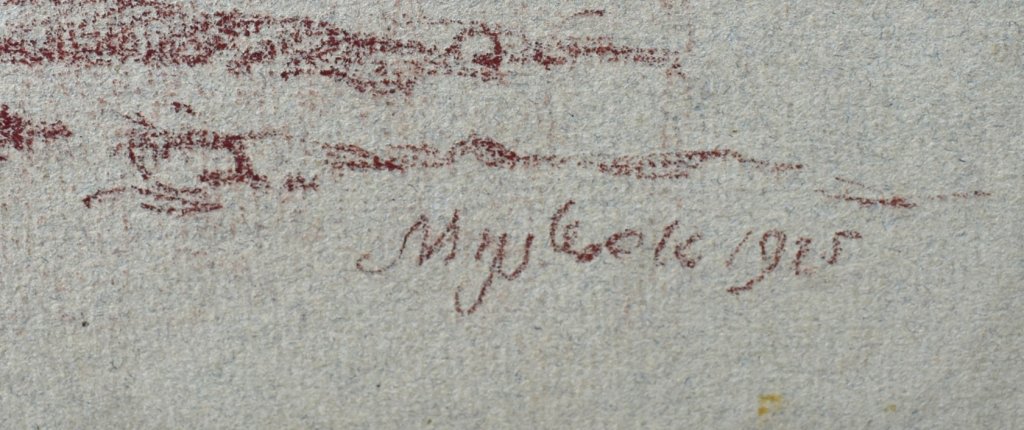 Myslbek 1915